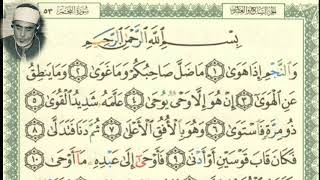 الجزء السابع والعشرون سُورَةُ النَّجْمِ ٥٣
بِسْمِ اللَّهِ الرَّحْمَٰنِ الرَّحِيمِ
وَالنَّجْمِ إِذَا هَوَىٰ ١ مَا ضَلَّ صَاحِبُكُمْ وَمَا غَوَىٰ ٢ وَمَا يَنطِقُ
عَنِ الْهَوَىٰ ٣ إِنْ هُوَ إِلَّا وَحْيٌ يُوحَىٰ ٤ عَلَّمَهُ شَدِيدُ الْقُوَىٰ ٥
ذُو مِرَّةٍ فَاسْتَوَىٰ ٦ وَهُوَ بِالْأُفُقِ الْأَعْلَىٰ ٧ ثُمَّ دَنَا فَتَدَلَّىٰ ٨
فَكَانَ قَابَ قَوْسَيْنِ أَوْ أَدْنَىٰ ٩ فَأَوْحَىٰ إِلَىٰ عَبْدِهِ مَا أَوْحَىٰ ١٠